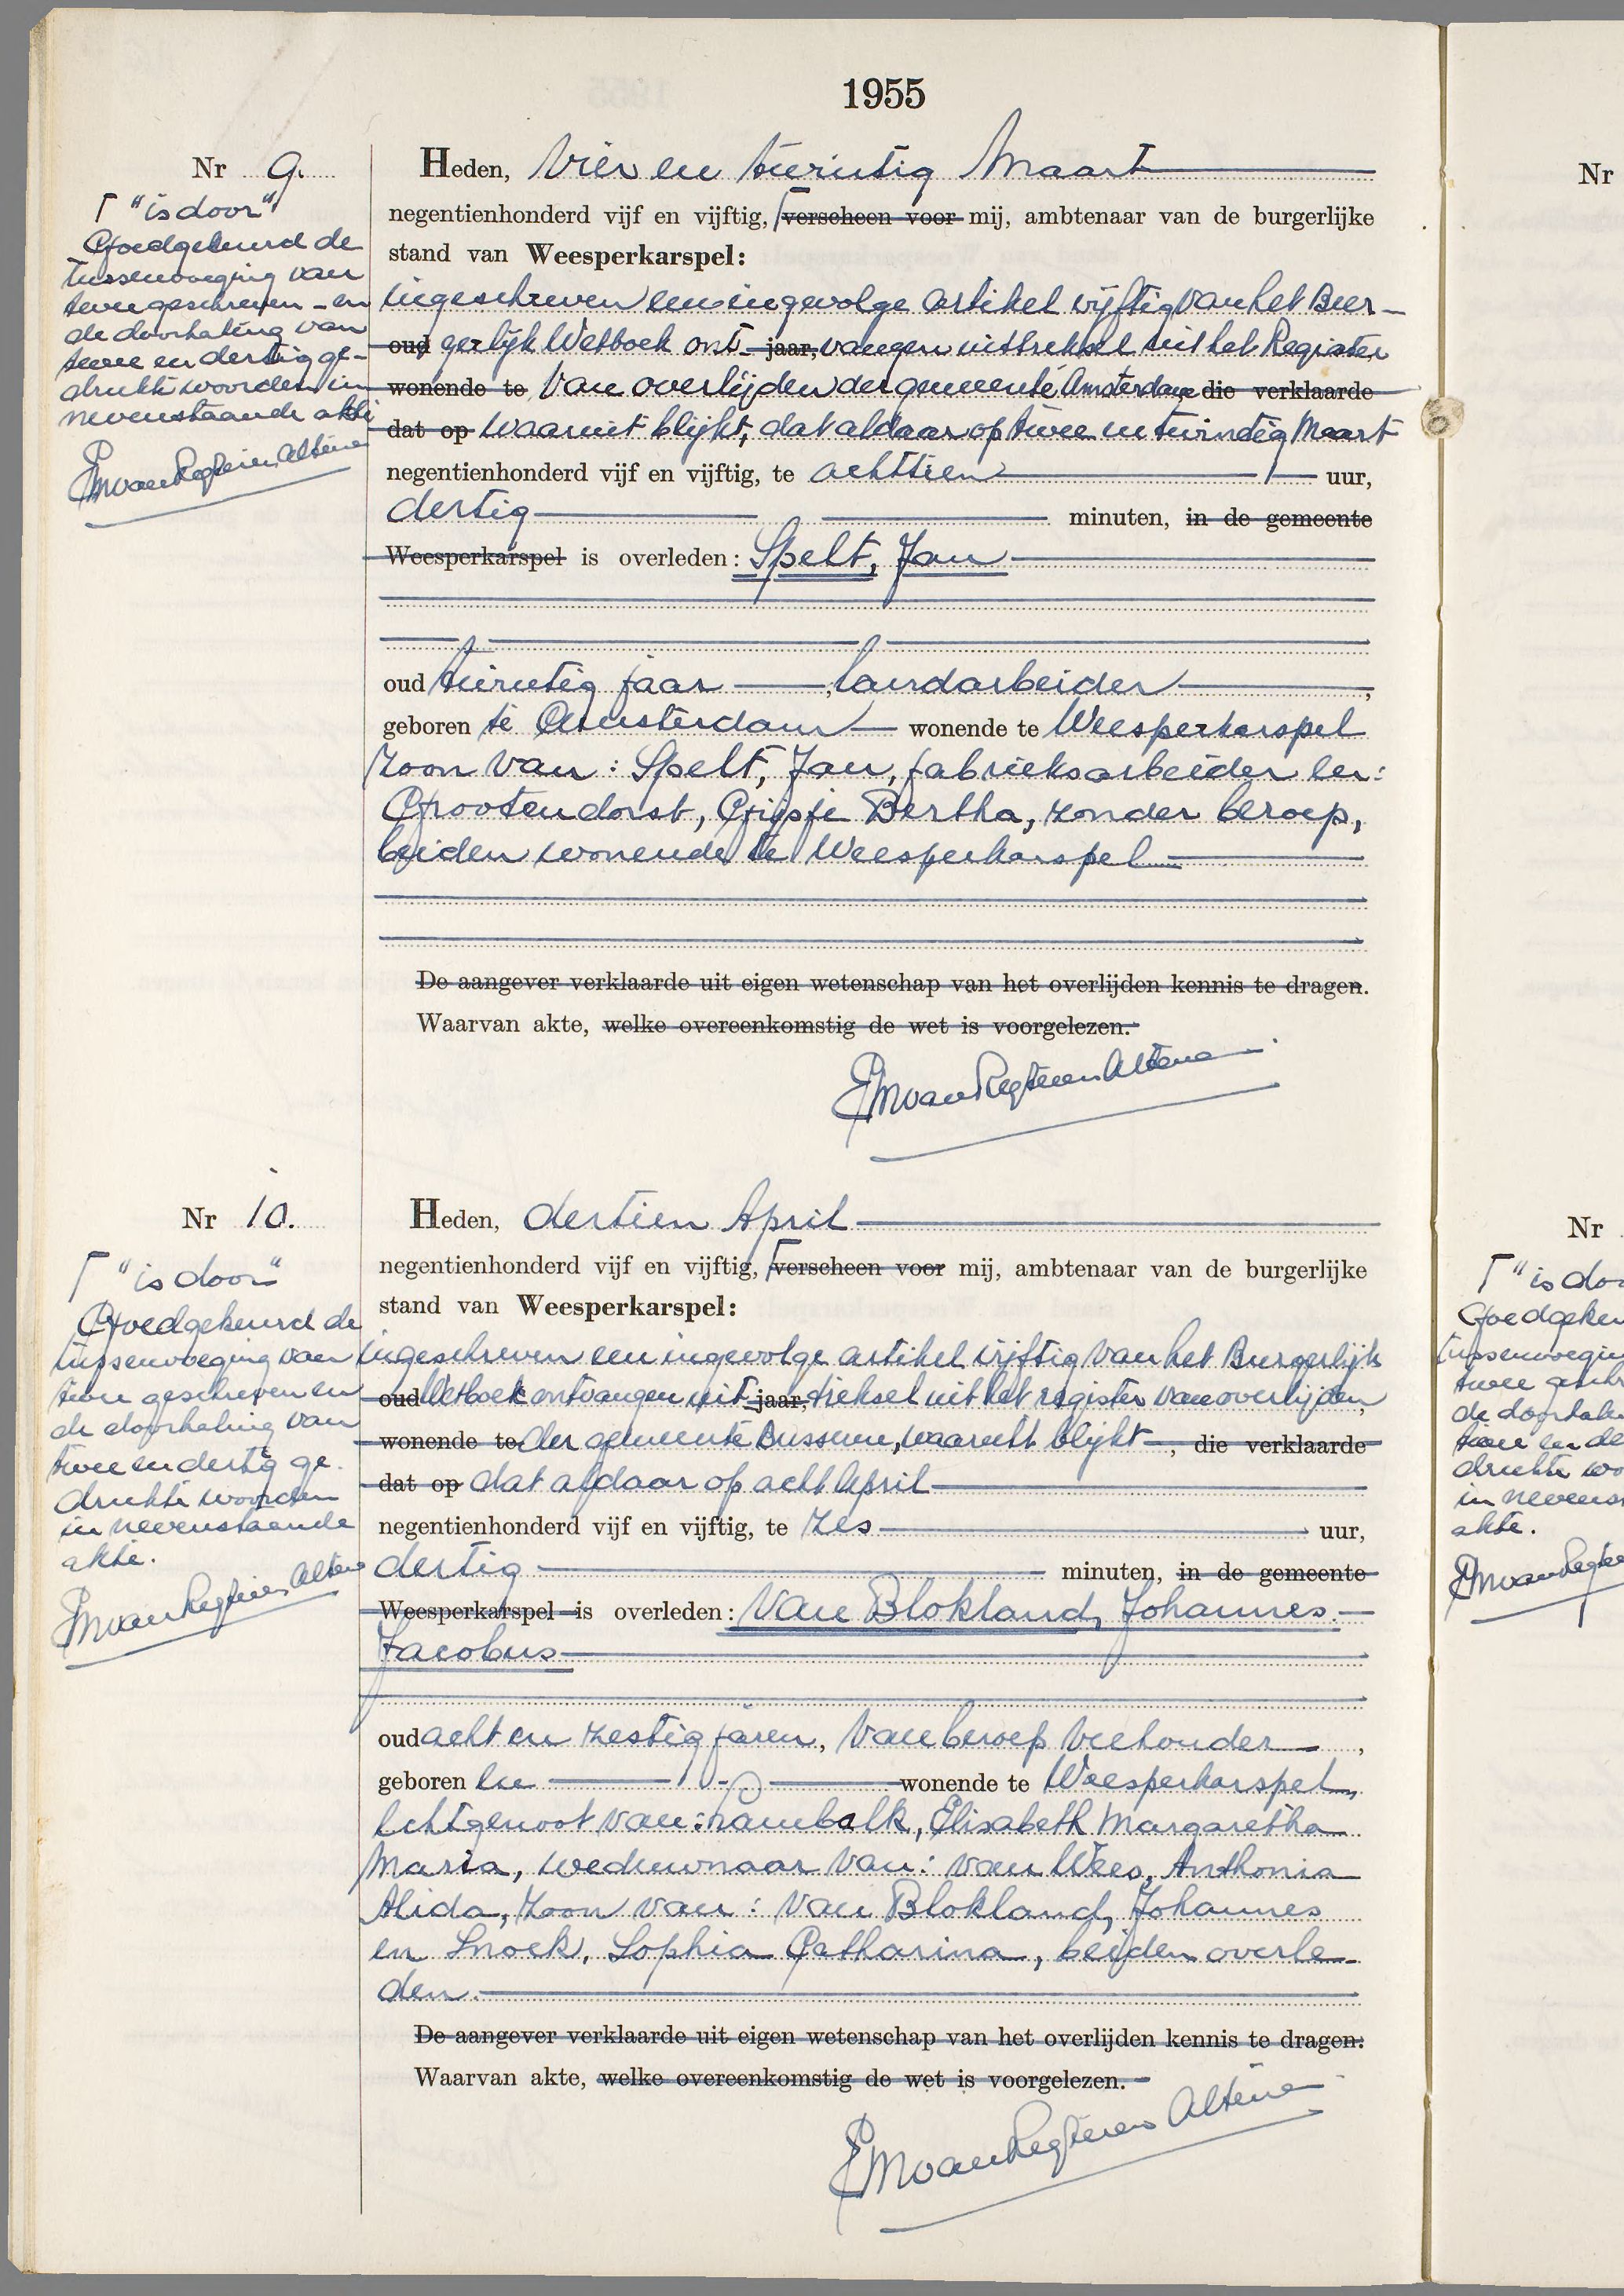 1955
Nr 9.
⌈ "is door"
Goedgekeurd de
tussenvoeging van
twee geschreven - en
de doorhaling van
twee en dertig ge-
drukte woorden in
nevenstaande akte
PM van Regteren Altena
Heden, vier en twintig Maart
negentienhonderd vijf en vijftig, ⌈ verscheen voor mij, ambtenaar van de burgerlijke
stand van Weesperkarspel:
ingeschreven een ingevolge artikel vijftig van het Bur-
oud gerlijk Wetboek ont- jaar, vangen uittreksel uit het Register
wonende te van overlijden der gemeente Amsterdam, die verklaarde
dat op waaruit blijkt, dat aldaar op twee en twintig Maart
negentienhonderd vijf en vijftig, te achttien uur,
dertig minuten, in de gemeente
Weesperkarspel is overleden: Spelt, Jan
oud twintig jaar, landarbeider,
geboren te Amsterdam wonende te Weesperkarspel
zoon van: Spelt, Jan, fabrieksarbeider en:
Grootendorst, Gijsje Bertha, zonder beroep,
beiden wonende te Weesperkarspel
De aangever verklaarde uit eigen wetenschap van het overlijden kennis te dragen.
Waarvan akte, welke overeenkomstig de wet is voorgelezen.
PM van Regteren Altena
Nr 10.
⌈ "is door"
Goedgekeurd de
tussenvoeging van
twee geschreven en
de doorhaling van
twee en dertig ge-
drukte woorden
in nevenstaande
akte.
PM van Regteren Altena
Heden, dertien April
negentienhonderd vijf en vijftig, ⌈ verscheen voor mij, ambtenaar van de burgerlijke
stand van Weesperkarspel:
ingeschreven een ingevolge artikel vijftig van het Burgerlijk
oud Wetboek ontvangen uit- jaar, treksel uit het register van overlijden
wonende te der gemeente Bussum, waaruit blijkt, die verklaarde
dat op dat aldaar op acht April
negentienhonderd vijf en vijftig, te zes uur,
dertig minuten, in de gemeente
Weesperkarspel is overleden: van Blokland, Johannes
Jacobus
oud acht en zestig jaren, van beroep veehouder,
geboren en wonende te Weesperkarspel,
echtgenoot van: Rambalk, Elisabeth Margaretha
Maria, weduwnaar van: van Wees, Anthonia
Alida, zoon van: van Blokland, Johannes
en Snoek, Sophia Catharina, beiden overle-
den.
De aangever verklaarde uit eigen wetenschap van het overlijden kennis te dragen.
Waarvan akte, welke overeenkomstig de wet is voorgelezen.
PM van Regteren Altena
Nr
Nr
⌈ "is doo
Goedgeke
tussenvoegin
twee gesch
de doorhal
twee en de
drukte wo
in nevens
akte.
PM van Regte